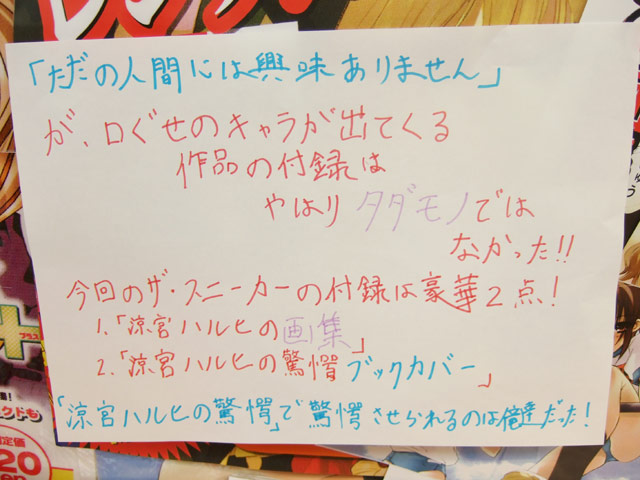 「ただの人間には興味ありません」
が、口ぐせのキャラが出てくる
作品の付録は
やはりタダモノでは
なかった!!
今回のザ・スニーカーの付録は豪華2点!
1.「涼宮ハルヒの画集」
2.「涼宮ハルヒの驚愕ブックカバー」
「涼宮ハルヒの驚愕」で驚愕させられるのは俺達だった!
プラス
クドも
定価
20